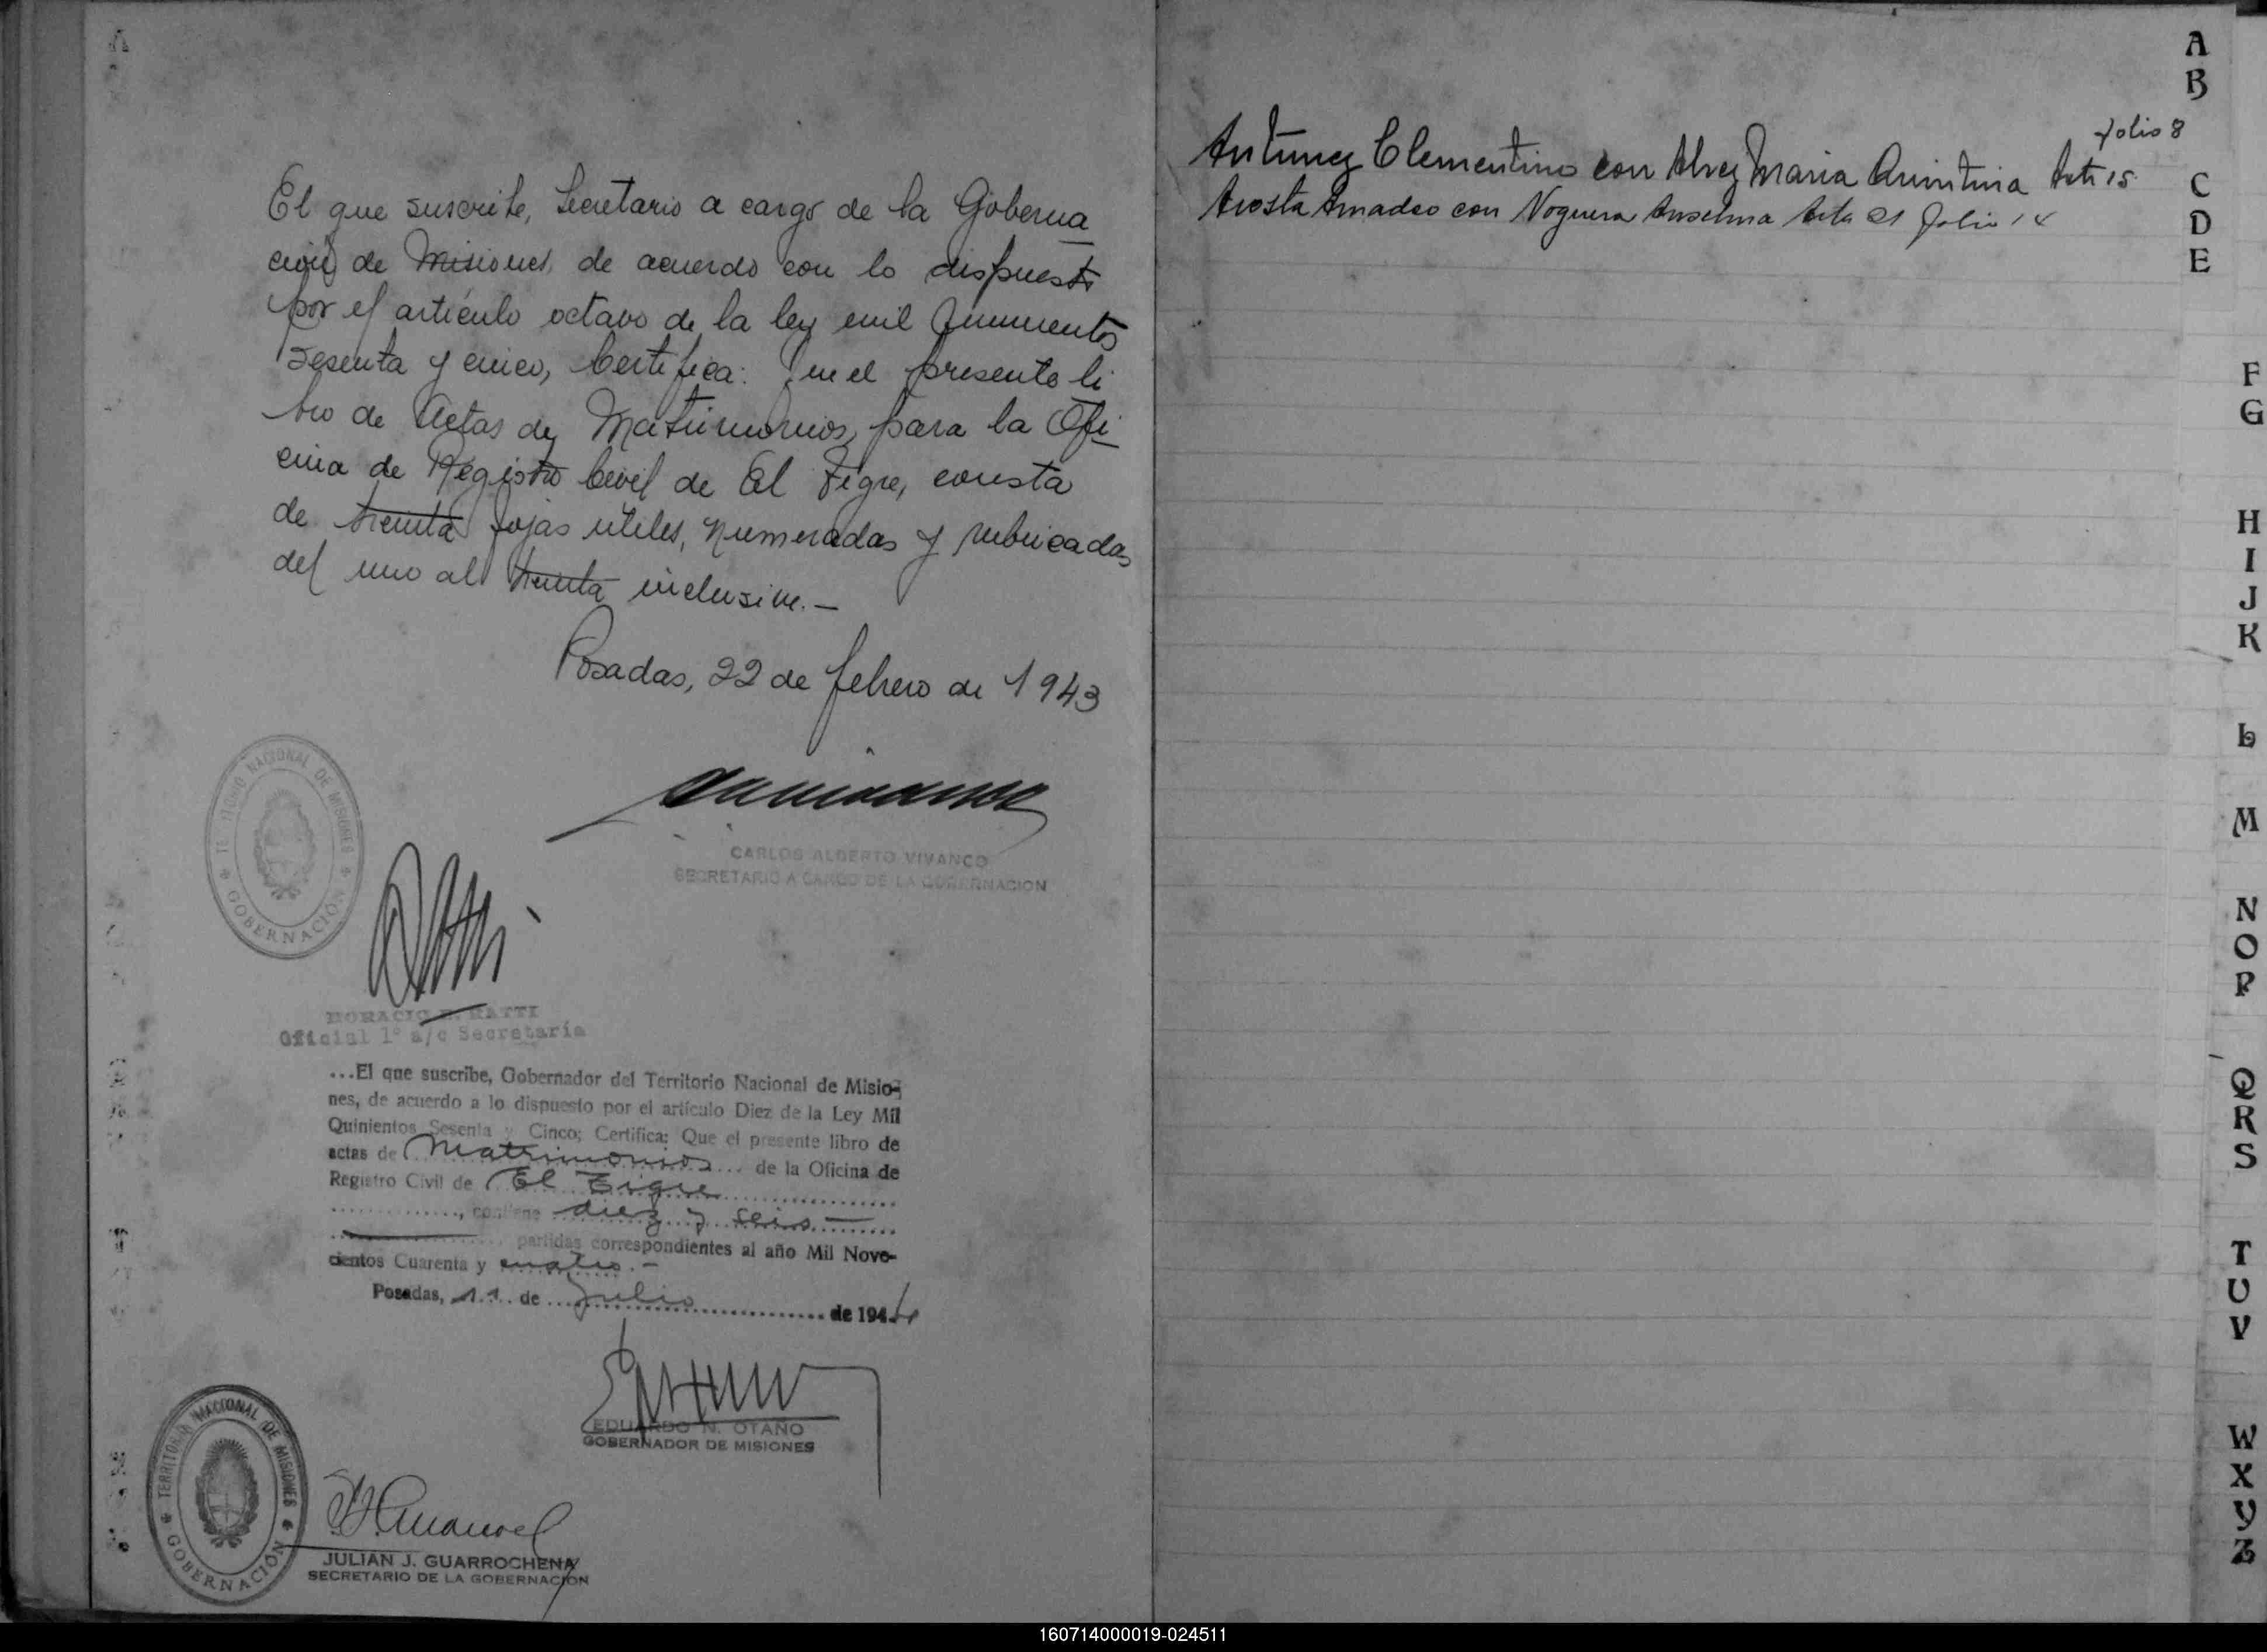 El que suscribe, Secretario a cargo de la Goberna
ción de Misiones, de acuerdo con lo dispuesto
por el artículo octavo de la ley mil quinientos
sesenta y cinco, Certifica: Que el presente li
bro de Actas de Matrimonios, para la Ofi
cina de Registro Civil de El Tigre, consta
de treinta fojas utiles, numeradas y rubricadas
del uno al treinta inclusive.—
Posadas, 22 de febrero de 1943
TERRITORIO NACIONAL DE MISIONES
GOBERNACIÓN
CARLOS ALBERTO VIVANCO
SECRETARIO A CARGO DE LA GOBERNACION
HORACIO RATTI
Oficial 1º a/c Secretaría
...El que suscribe, Gobernador del Territorio Nacional de Misio-
nes, de acuerdo a lo dispuesto por el artículo Diez de la Ley Mil
Quinientos Sesenta y Cinco; Certifica: Que el presente libro de
actas de Matrimonios de la Oficina de
Registro Civil de El Tigre
, contiene diez y seis —
partidas correspondientes al año Mil Nove-
cientos Cuarenta y cuatro.-
Posadas, 11 de Julio de 1944
EDUARDO N. OTAÑO
GOBERNADOR DE MISIONES
TERRITORIO NACIONAL DE MISIONES
GOBERNACIÓN
JULIAN J. GUARROCHENA
SECRETARIO DE LA GOBERNACIÓN
folio 8
Antunez Clementino con Alvez Maria Quintina Acta 15
Acosta Amadeo con Noguera Anselma Acta 21 folio 14
A
B
C
D
E
F
G
H
I
J
K
L
M
N
O
P
Q
R
S
T
U
V
W
X
Y
Z
160714000019-024511